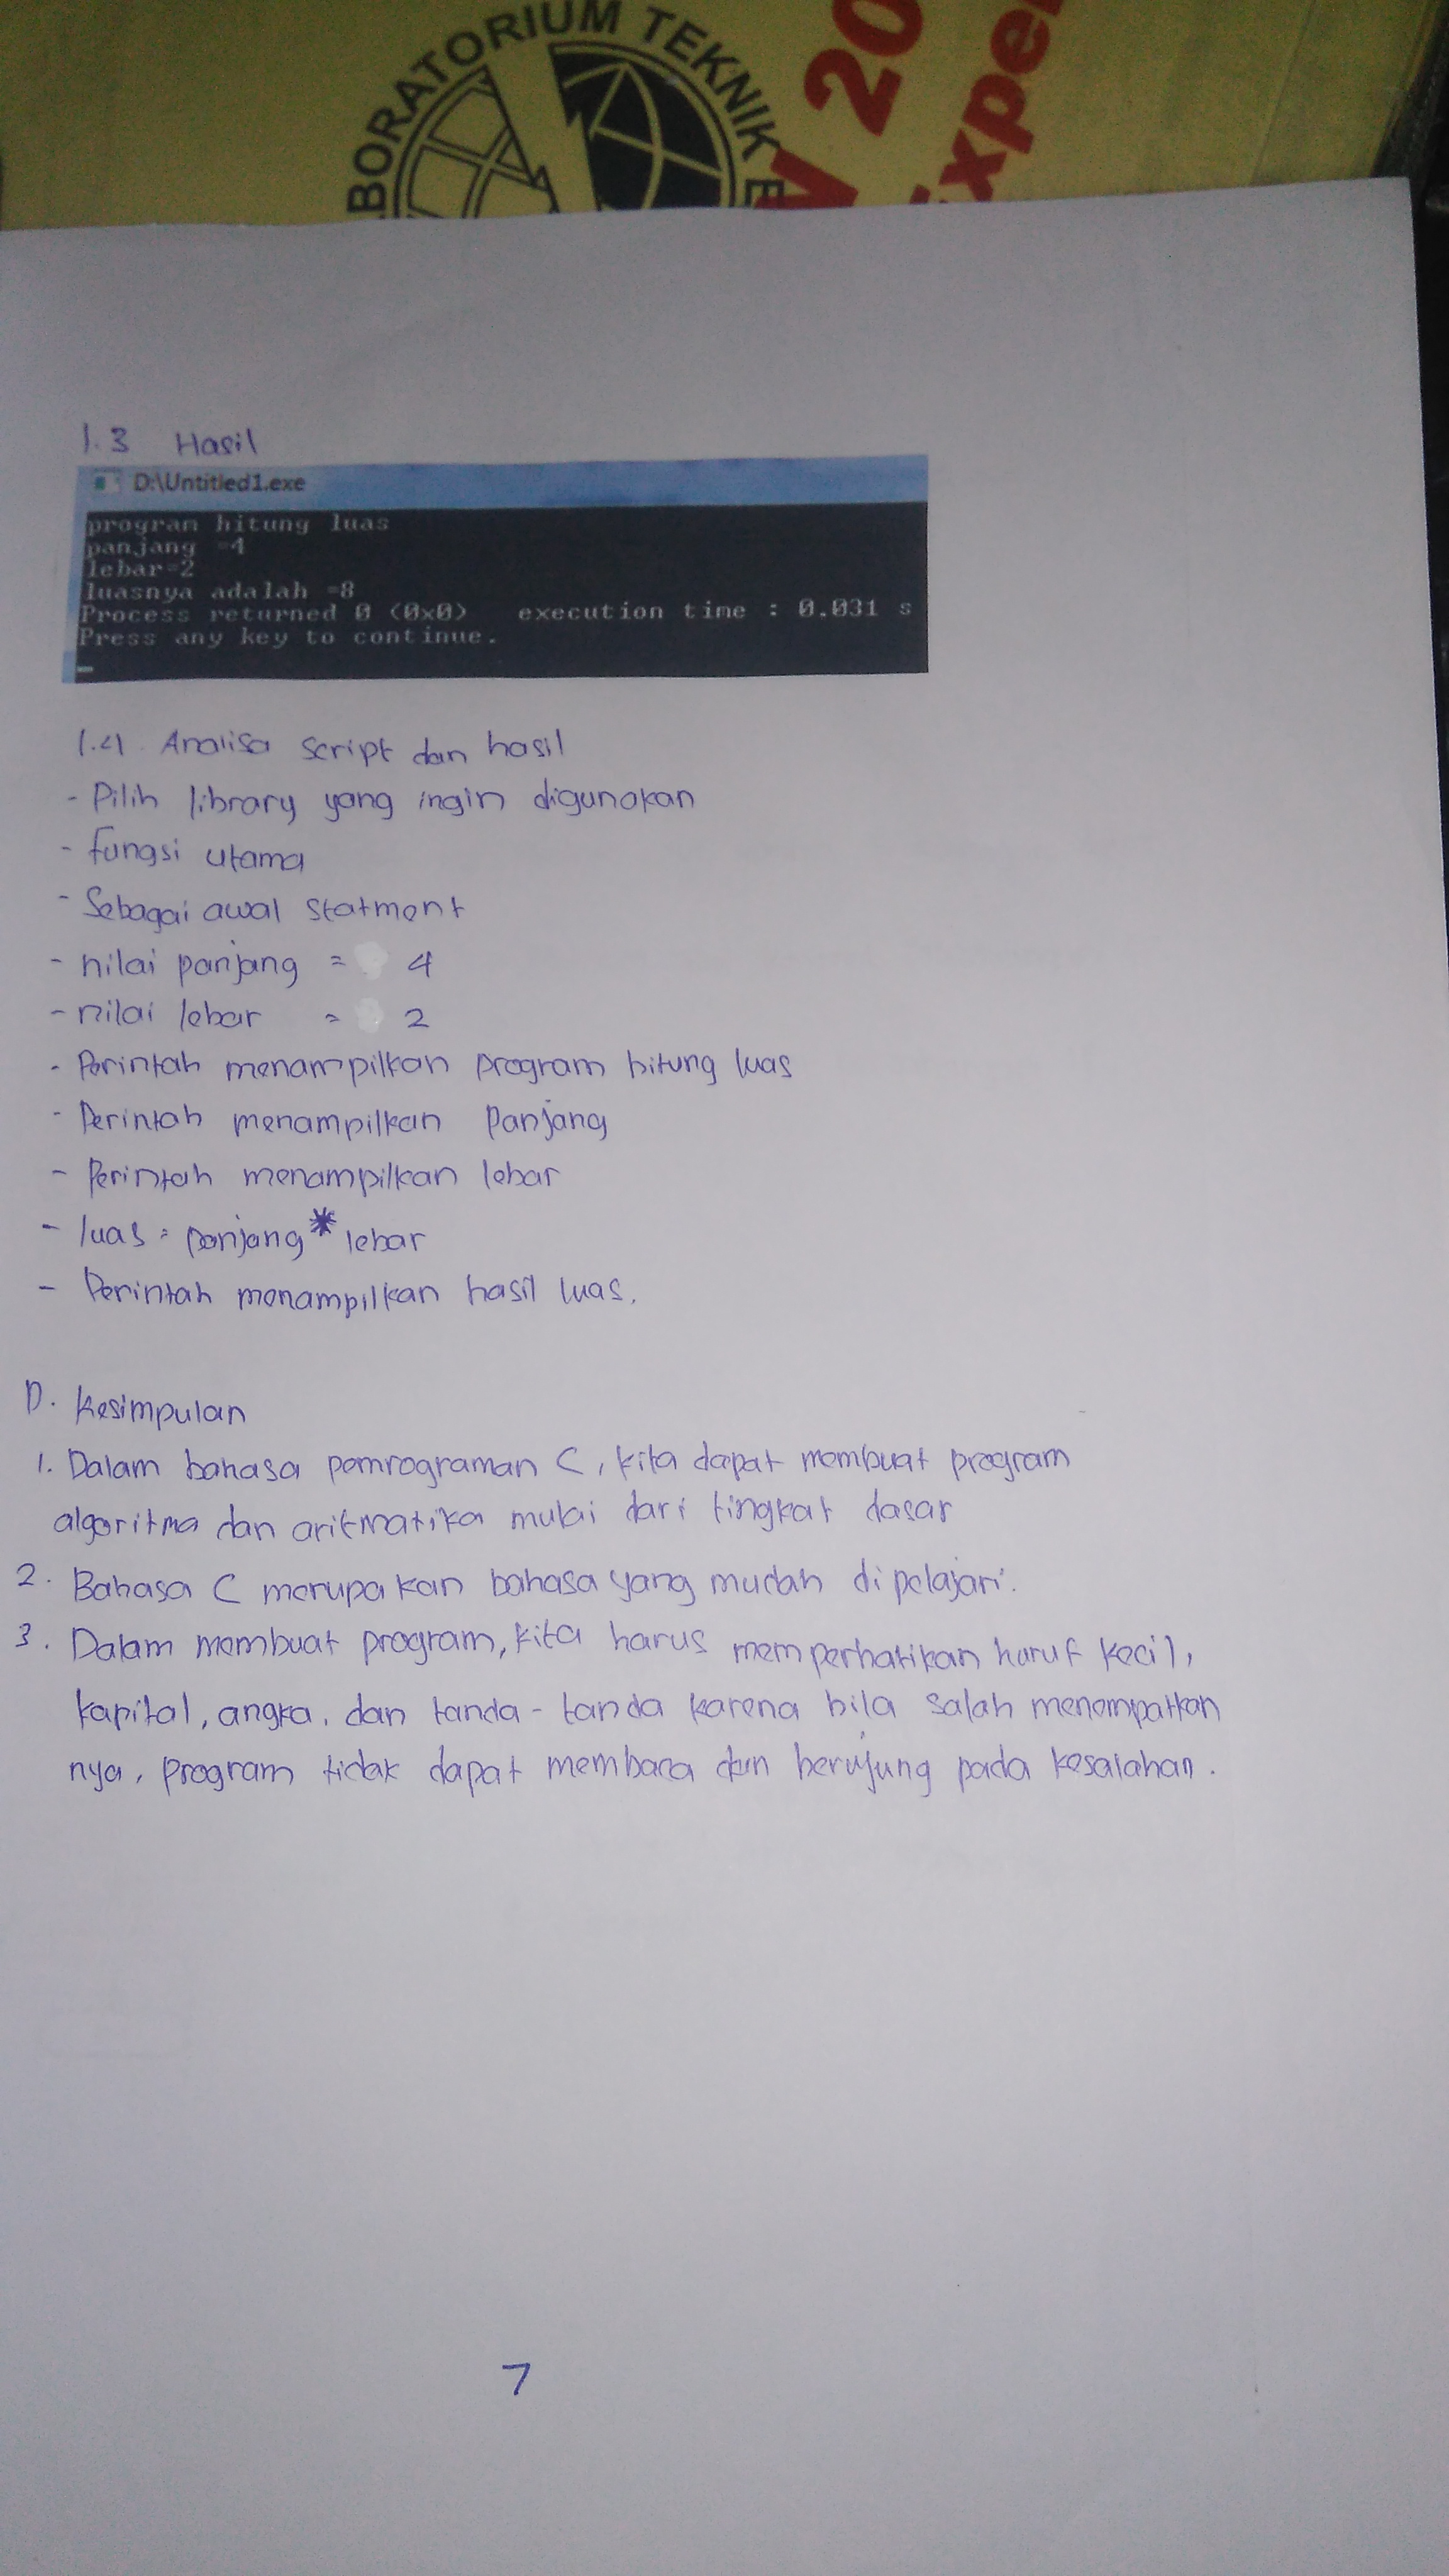 BORATORIUM TEKNIK E
V 20
Expe
1.3 Hasil
D:\Untitled1.exe
program hitung luas
panjang =4
lebar=2
luasnya adalah =8
Process returned 0 (0x0)   execution time : 0.031 s
Press any key to continue.
1.4 Analisa script dan hasil
- Pilih library yang ingin digunakan
- fungsi utama
- Sebagai awal statment
- nilai panjang = 4
- nilai lebar = 2
- Perintah menampilkan program hitung luas
- Perintah menampilkan Panjang
- Perintah menampilkan lebar
- luas = panjang * lebar
- Perintah menampilkan hasil luas.
D. Kesimpulan
1. Dalam bahasa pemrograman C, kita dapat membuat program
algoritma dan aritmatika mulai dari tingkat dasar
2. Bahasa C merupakan bahasa yang mudah dipelajari.
3. Dalam membuat program, kita harus memperhatikan huruf kecil,
kapital, angka, dan tanda-tanda karena bila salah menempatkan
nya, program tidak dapat membaca dan berujung pada kesalahan.
7